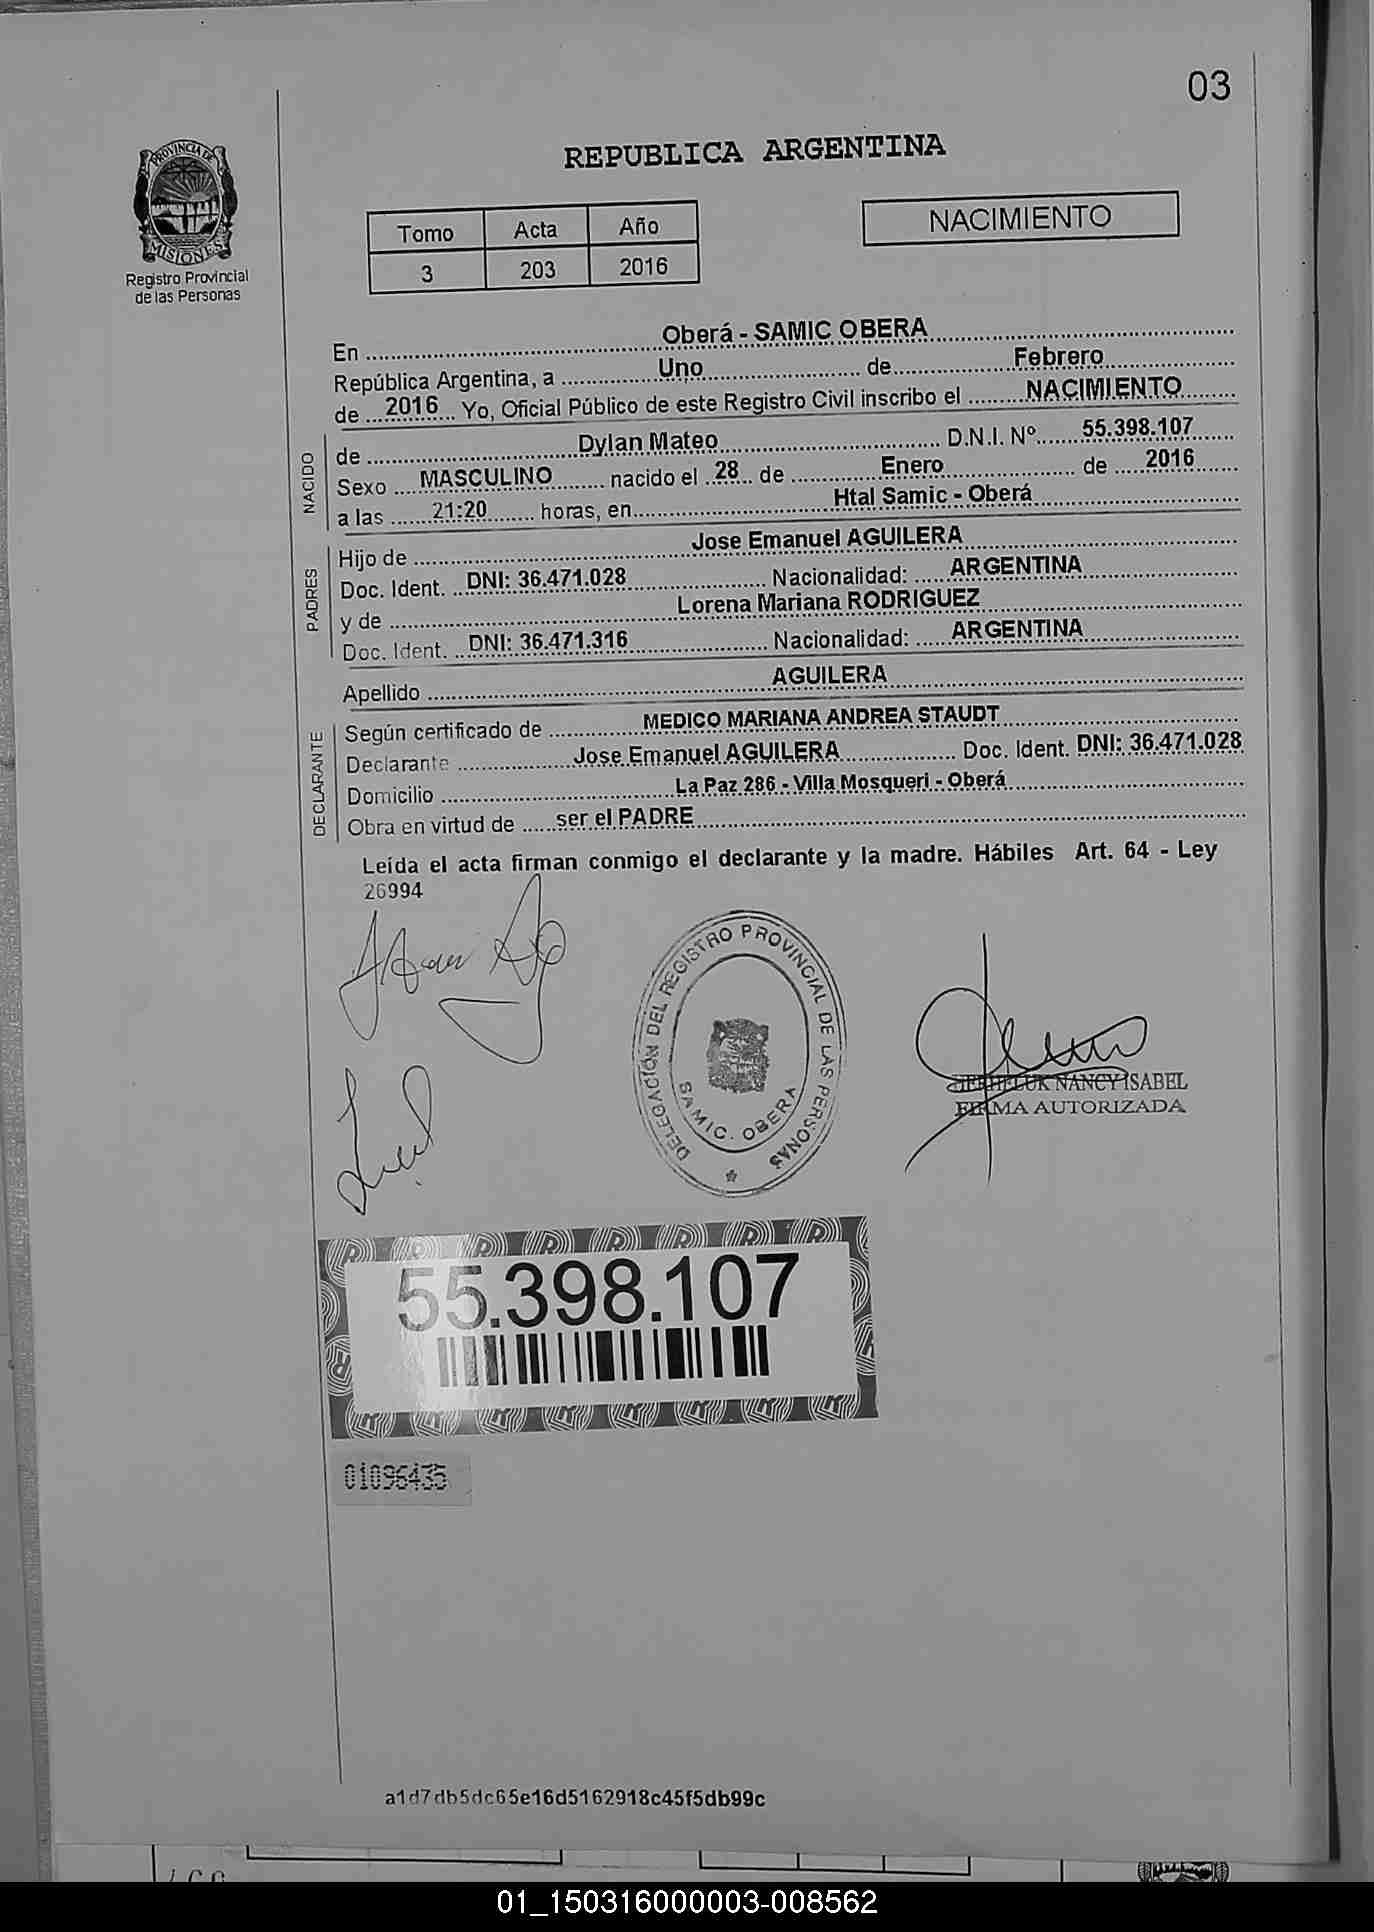 03
PROVINCIA DE
MISIONES
Registro Provincial
de las Personas
REPUBLICA ARGENTINA
Tomo Acta Año
3 203 2016
NACIMIENTO
En Oberá - SAMIC OBERA
República Argentina, a Uno de Febrero
de 2016 Yo, Oficial Público de este Registro Civil inscribo el NACIMIENTO
NACIDO
de Dylan Mateo D.N.I. Nº 55.398.107
Sexo MASCULINO nacido el 28 de Enero de 2016
a las 21:20 horas, en Htal Samic - Oberá
PADRES
Hijo de Jose Emanuel AGUILERA
Doc. Ident. DNI: 36.471.028 Nacionalidad: ARGENTINA
y de Lorena Mariana RODRIGUEZ
Doc. Ident. DNI: 36.471.316 Nacionalidad: ARGENTINA
Apellido AGUILERA
DECLARANTE
Según certificado de MEDICO MARIANA ANDREA STAUDT
Declarante Jose Emanuel AGUILERA Doc. Ident. DNI: 36.471.028
Domicilio La Paz 286 - Villa Mosqueri - Oberá
Obra en virtud de ser el PADRE
Leída el acta firman conmigo el declarante y la madre. Hábiles Art. 64 - Ley
26994
DELEGACIÓN DEL REGISTRO PROVINCIAL DE LAS PERSONAS
SAMIC. OBERA
NANCY ISABEL
FIRMA AUTORIZADA
55.398.107
01096435
a1d7db5dc65e16d5162918c45f5db99c
01_150316000003-008562